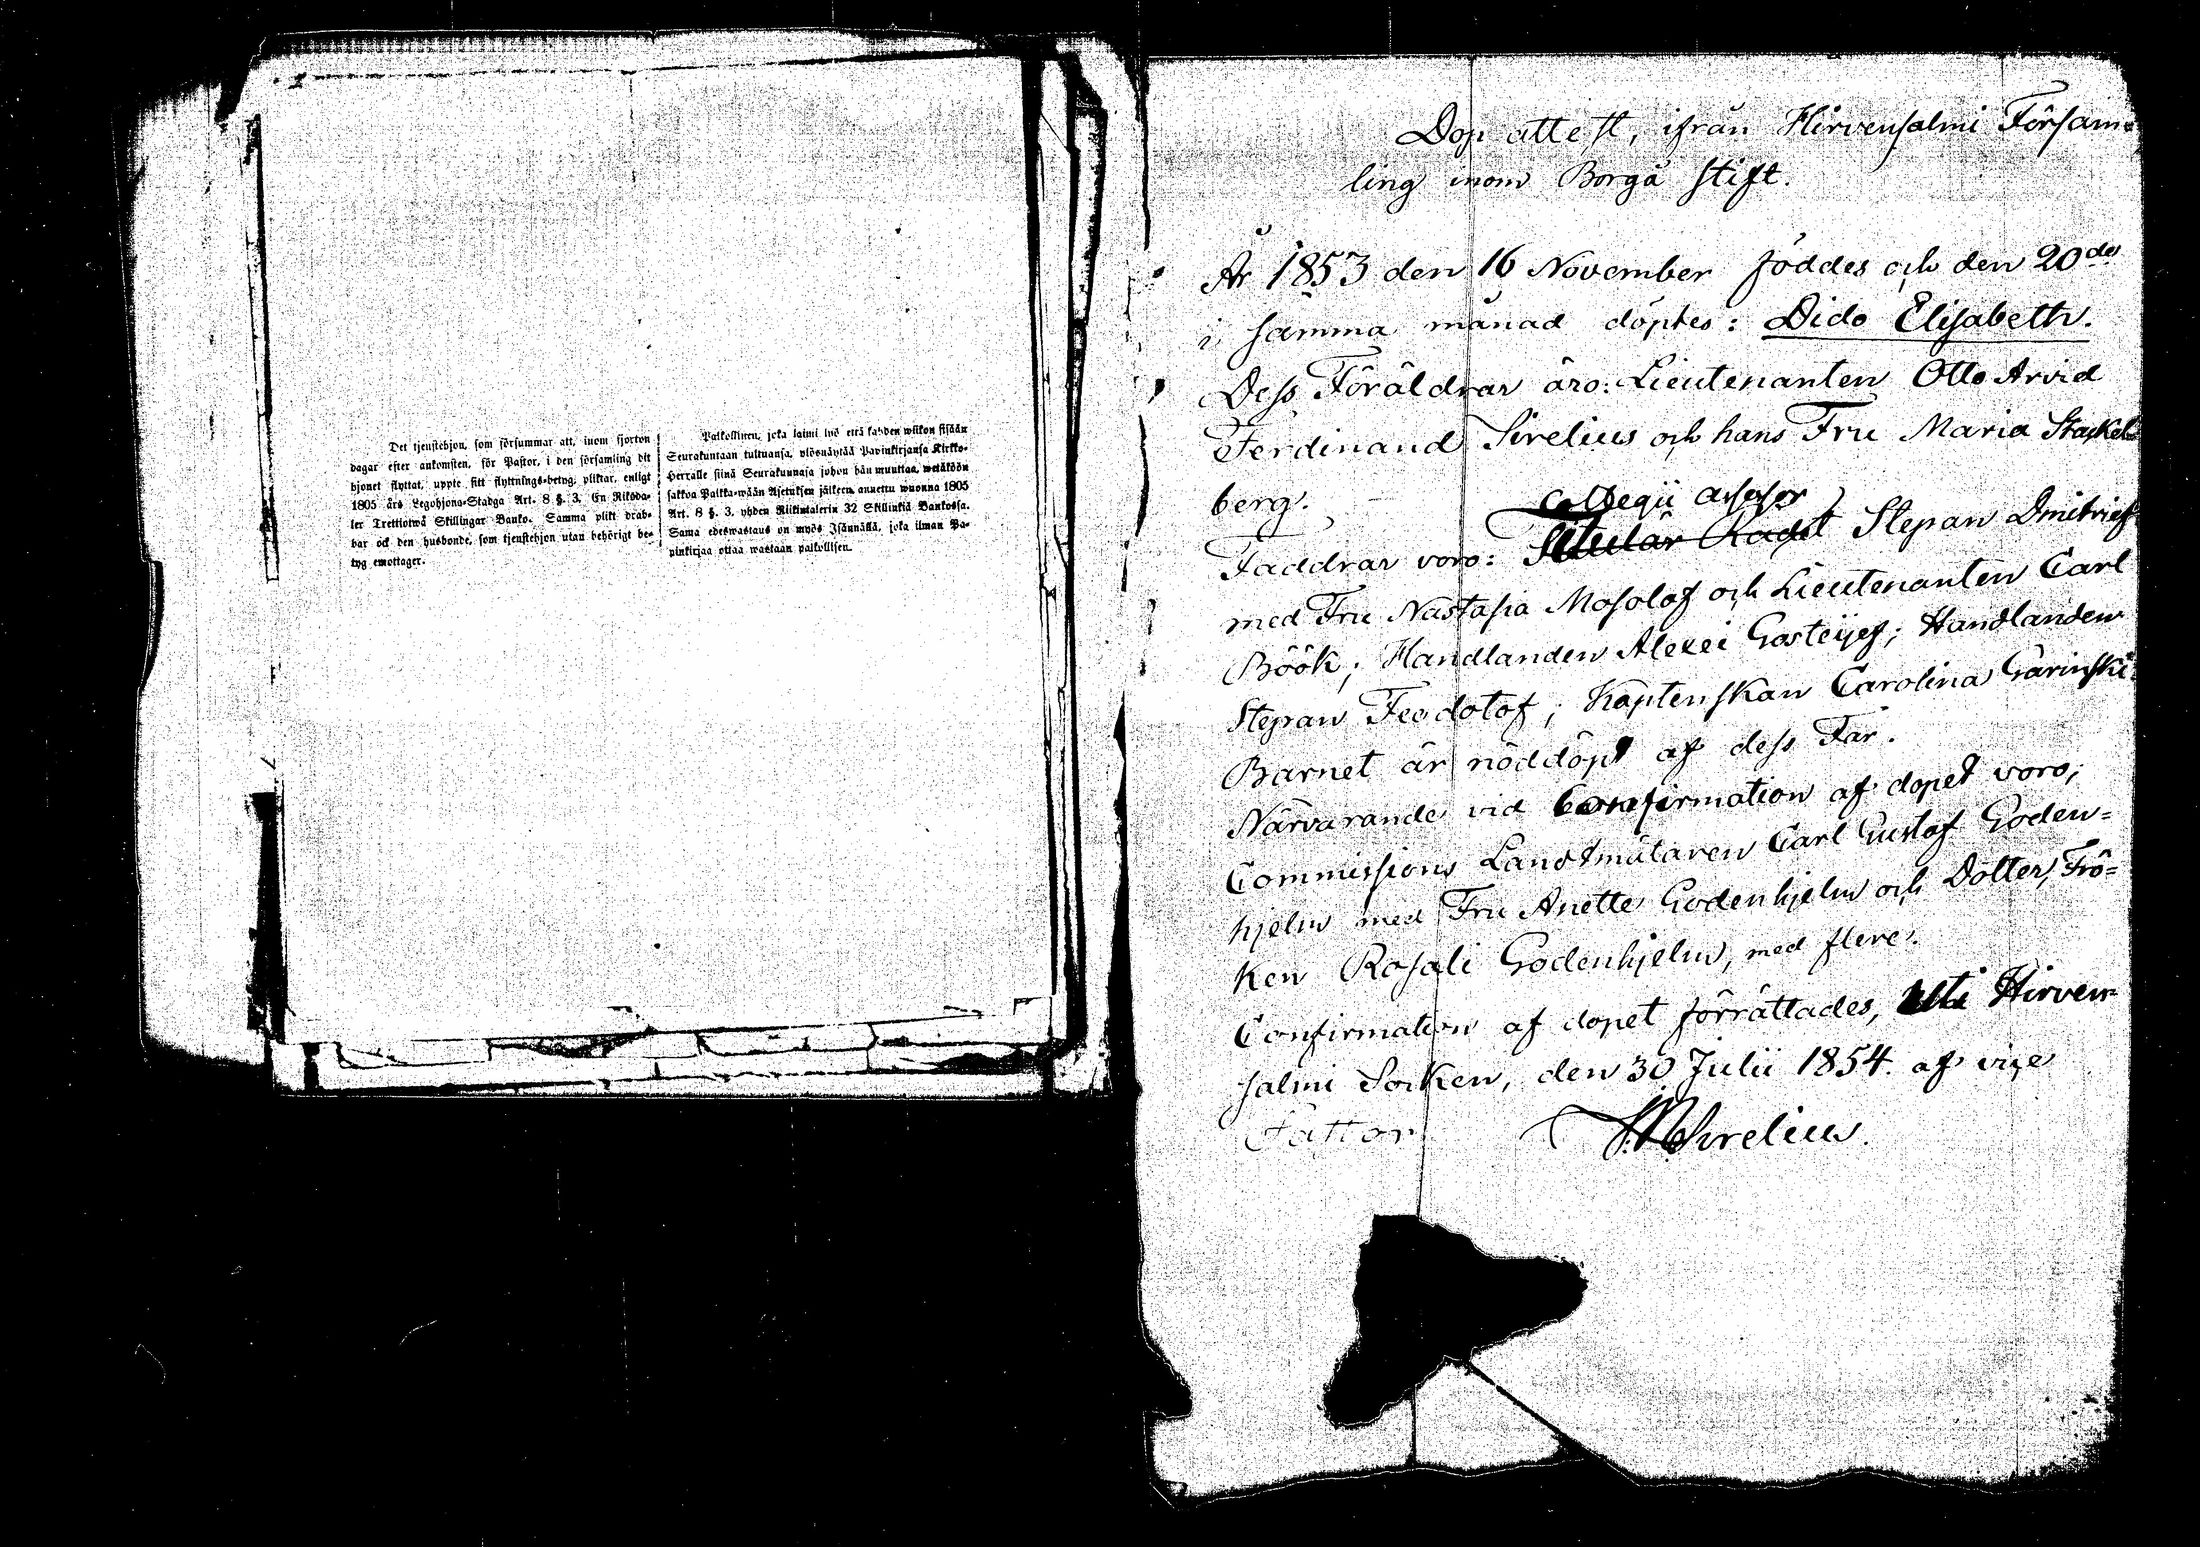 Det tjenstehjon, som försummar att, inom fjorton
dagar efter ankomsten, för Pastor, i den församling dit
hjonet flyttat, uppte sitt flyttnings-betyg, pliktar, enligt
1805 års Legohjons-Stadga Art. 8 §. 3, En Riksda-
ler Trettiotwå Skillingar Banko. Samma plikt drab-
bar ock den husbonde, som tjenstehjon utan behörigt be-
tyg emottager.
Palkollinen, joka laimi lyö että kahden wiikon sisään
Seurakuntaan tultuansa, ylösnäytää Papinkirjansa Kirkko-
Herralle siinä Seurakunnasa johon hän muuttaa, wetäköön
sakkoa Palkka-wään Asetuksen jälkeen, annettu wuonna 1805
Art. 8 §. 3. yhden Riikintalerin 32 Skillinkiä Bankossa.
Sama edeswastaus on myös Isännällä, joka ilman Pa-
pinkirjaa ottaa wastaan palkollisen.
Dop attest, ifrån Hirvensalmi Försam-
ling inom Borgå stift.
År 1853 den 16 November föddes och den 20de
i samma månad döptes: Dido Elisabeth.
Dess Föräldrar äro: Lieutenanten Otto Arvid
Ferdinand Sirelius och hans Fru Maria Stackel-
berg.
Collegii assessor
Faddrar voro: Titulär Rådet Stepan Dmitrief
med Fru Nastasia Mosolof och Lieutenanten Carl
Böök; Handlanden Alexei Gosteijef; Handlanden
Stepan Feodotof; Kaptenskan Carolina Garinski.
Barnet är nöddöpt af dess Far.
Närvarande vid Confirmation af dopet voro;
Commissions Landtmätaren Carl Gustaf Goden=
hjelm med Fru Anette Godenhjelm och Dotter, Frö=
ken Rosali Godenhjelm, med flere.
Confirmation af dopet förrättades, uti Hirven-
salmi Socken, den 30 Julii 1854. af vice
Pastor Sirelius.